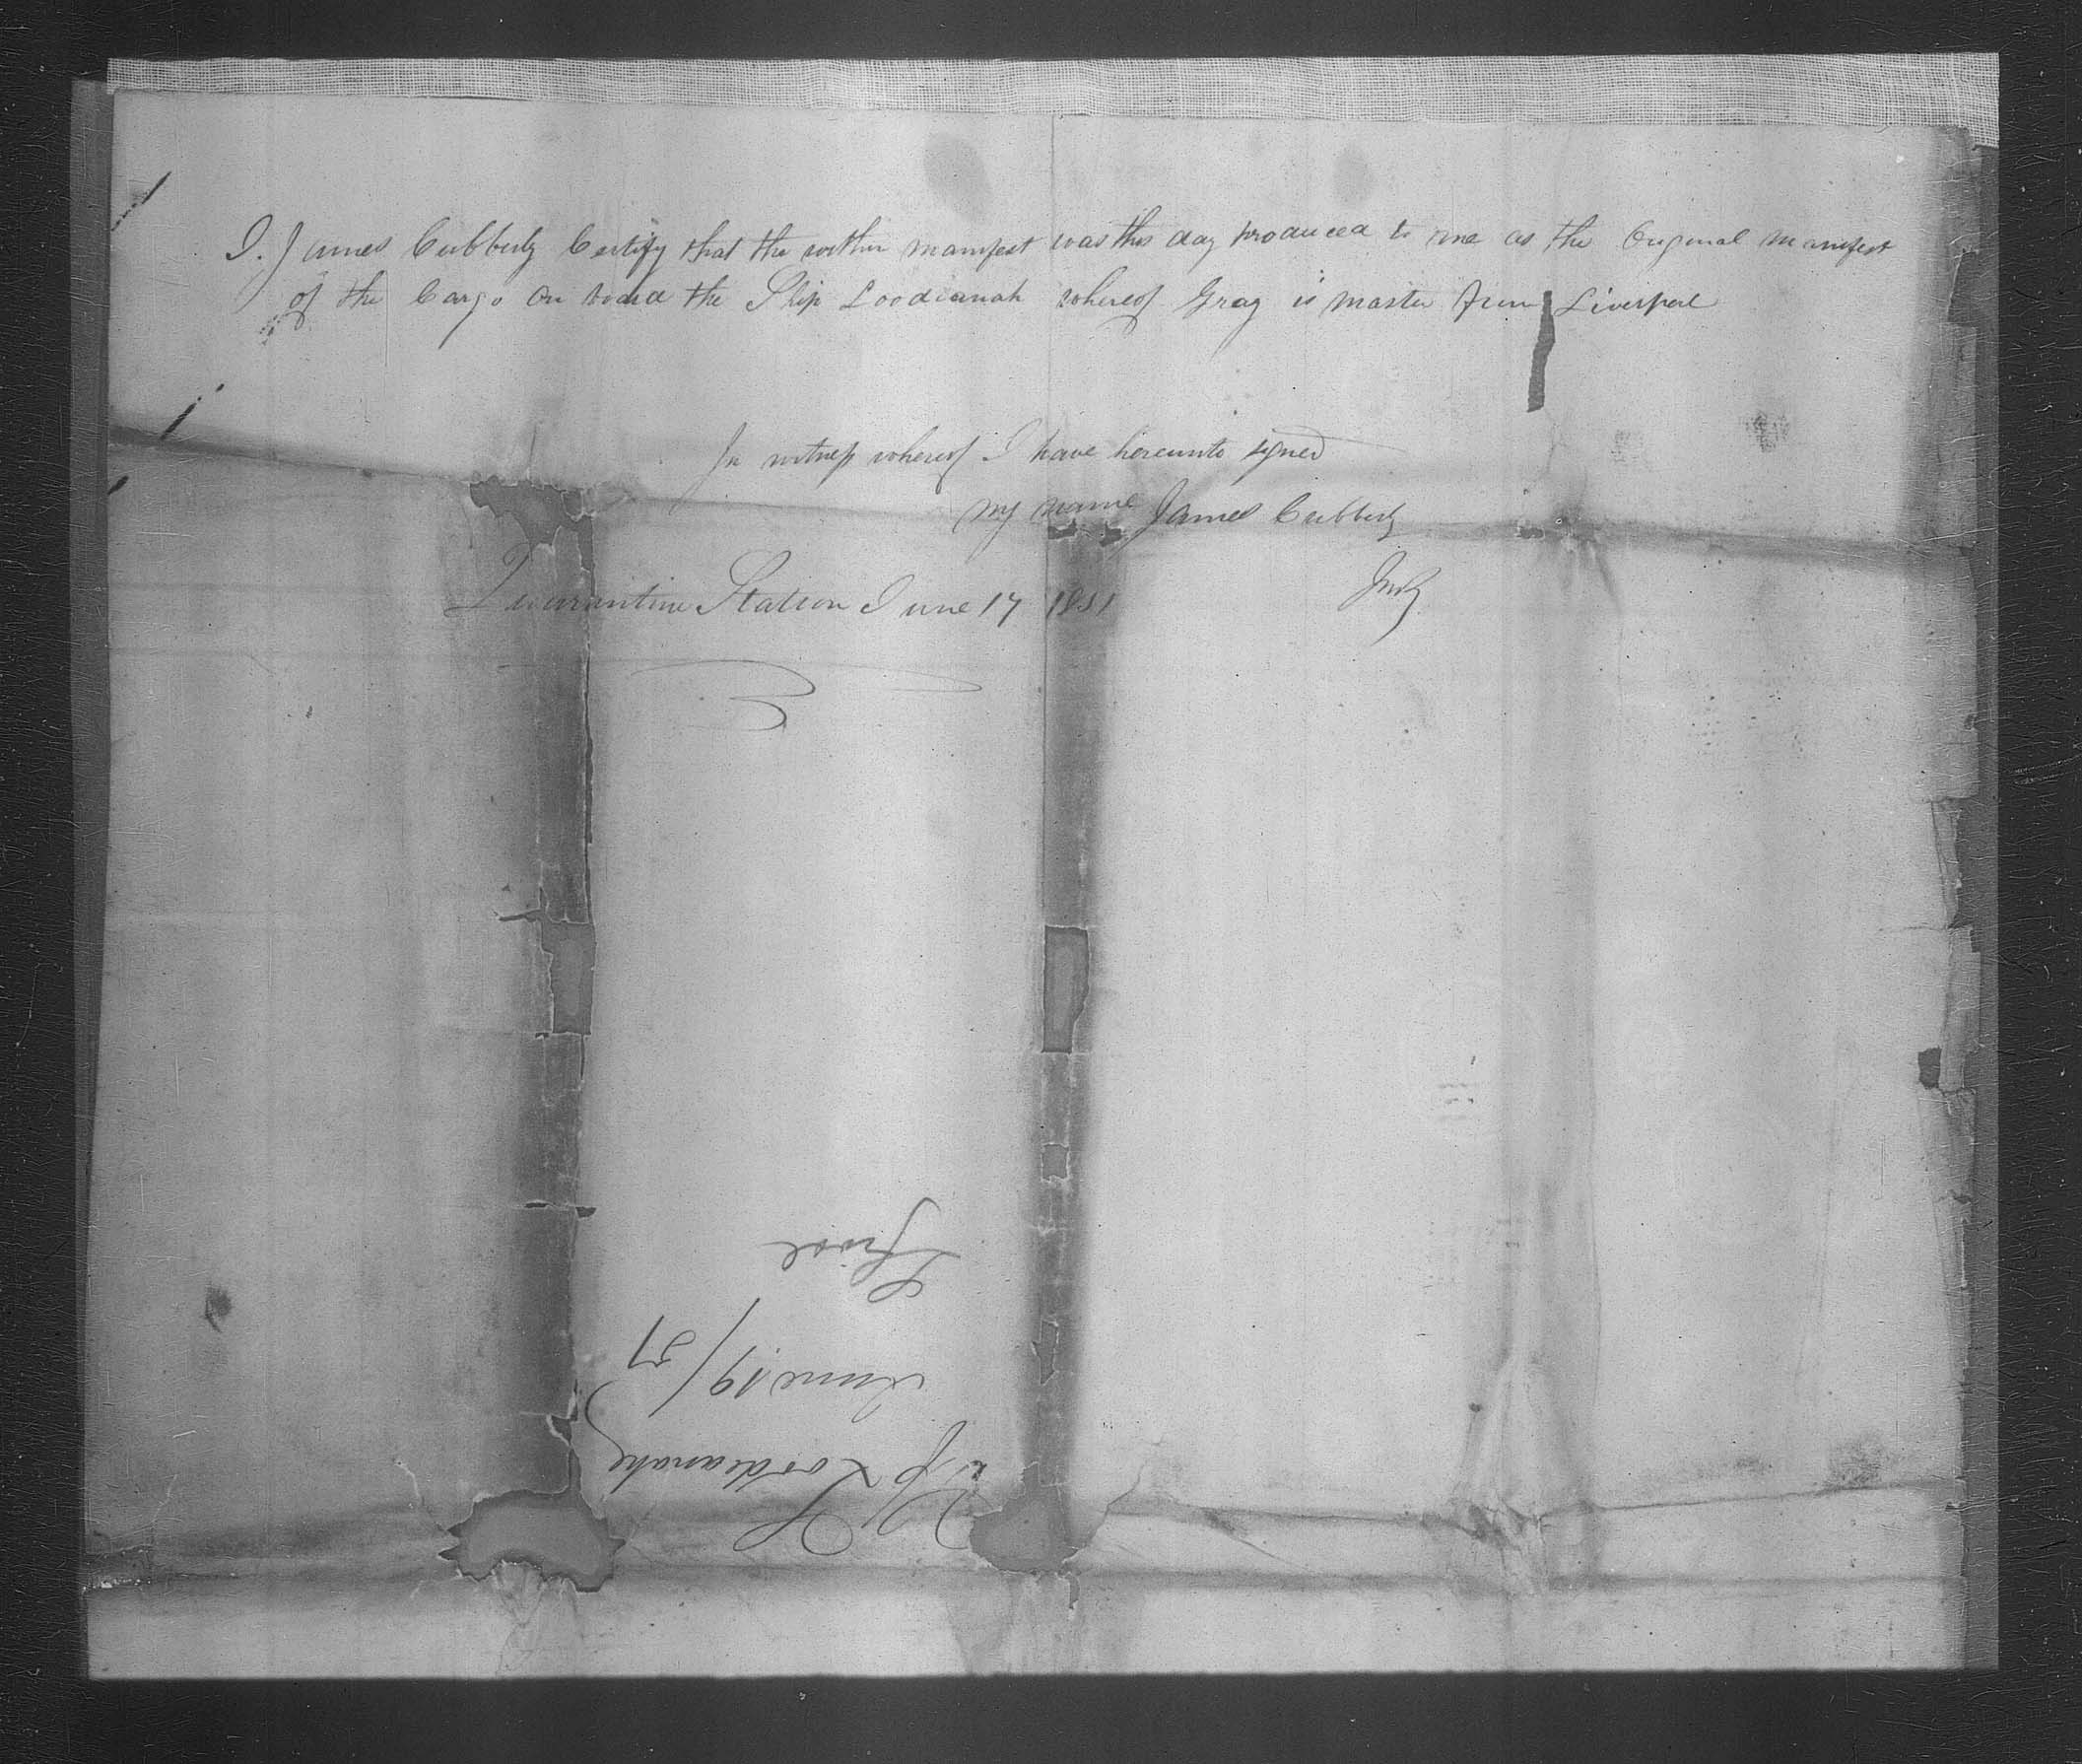 I. James Cubberly Certify that the within manifest was this day produced to me as the Original manifest
of the Cargo on board the Ship Loodianah whereof Gray is master from Liverpool
In witness whereof I have hereunto signed
my name James Cubberly
Quarantine Station June 17 1851
Loodianah
June 19/51